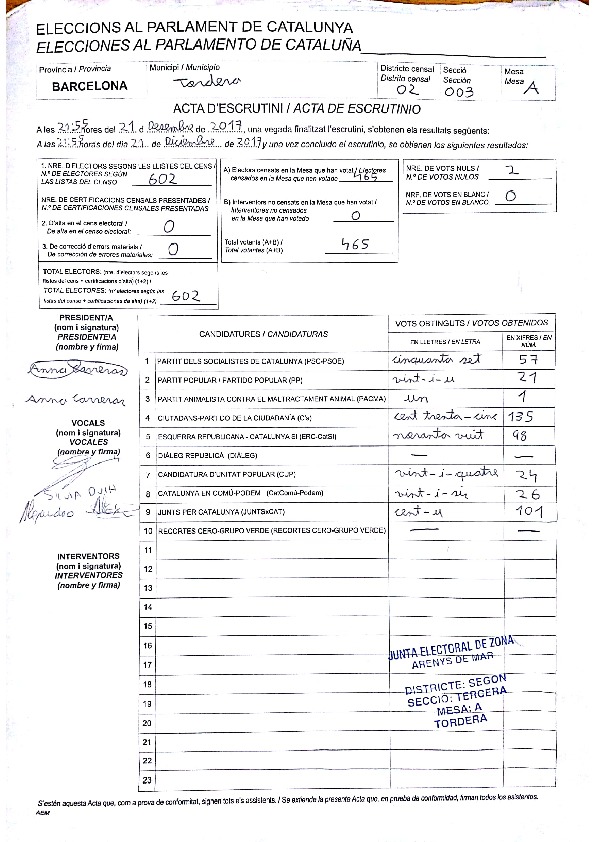 ELECCIONS AL PARLAMENT DE CATALUNYA
ELECCIONES AL PARLAMENTO DE CATALUÑA
Província / Provincia
BARCELONA
Municipi / Municipio
Tordera
Districte censal
Distrito censal
02
Secció
Sección
003
Mesa
Mesa
A
ACTA D'ESCRUTINI / ACTA DE ESCRUTINIO
A les 21:55 hores del 21 d Desembre de 2017, una vegada finalitzat l'escrutini, s'obtenen els resultats següents:
A las 21:55 horas del día 21 de Diciembre de 2017 y una vez concluido el escrutinio, se obtienen los siguientes resultados:
1. NRE. D'ELECTORS SEGONS LES LLISTES DEL CENS /
N.º DE ELECTORES SEGÚN
LAS LISTAS DEL CENSO 602
NRE. DE CERTIFICACIONS CENSALS PRESENTADES /
N.º DE CERTIFICACIONES CENSALES PRESENTADAS
2. D'alta en el cens electoral /
De alta en el censo electoral: 0
3. De correcció d'errors materials /
De corrección de errores materiales: 0
TOTAL ELECTORS: (nre. d'electors segons les
llistes del cens + certificacions d'alta) (1+2) /
TOTAL ELECTORES: (n.º electores según las
listas del censo + certificaciones de alta) (1+2) 602
A) Electors censats en la Mesa que han votat / Electores
censados en la Mesa que han votado 465
B) Interventors no censats en la Mesa que han votat /
Interventores no censados
en la Mesa que han votado 0
Total votants (A+B) /
Total votantes (A+B) 465
NRE. DE VOTS NULS /
N.º DE VOTOS NULOS 2
NRE. DE VOTS EN BLANC /
N.º DE VOTOS EN BLANCO 0
PRESIDENT/A
(nom i signatura)
PRESIDENTE/A
(nombre y firma)
Anna Carreras
Anna Carreras
VOCALS
(nom i signatura)
VOCALES
(nombre y firma)
INTERVENTORS
(nom i signatura)
INTERVENTORES
(nombre y firma)
CANDIDATURES / CANDIDATURAS
VOTS OBTINGUTS / VOTOS OBTENIDOS
EN LLETRES / EN LETRA
EN XIFRES / EN
NÚM.
1 PARTIT DELS SOCIALISTES DE CATALUNYA (PSC-PSOE) cinquanta set 57
2 PARTIT POPULAR / PARTIDO POPULAR (PP) vint-i-u 21
3 PARTIT ANIMALISTA CONTRA EL MALTRACTAMENT ANIMAL (PACMA) un 1
4 CIUTADANS-PARTIDO DE LA CIUDADANÍA (C's) cent trenta-cinc 135
5 ESQUERRA REPUBLICANA - CATALUNYA SÍ (ERC-CatSí) noranta vuit 98
6 DIÀLEG REPUBLICÀ (DIÀLEG) — —
7 CANDIDATURA D'UNITAT POPULAR (CUP) vint-i-quatre 24
8 CATALUNYA EN COMÚ-PODEM (CatComú-Podem) vint-i-sis 26
9 JUNTS PER CATALUNYA (JUNTSxCAT) cent-u 101
10 RECORTES CERO-GRUPO VERDE (RECORTES CERO-GRUPO VERDE) — —
11
12
13
14
15
16
17
18
19
20
21
22
23
JUNTA ELECTORAL DE ZONA
ARENYS DE MAR
DISTRICTE: SEGON
SECCIÓ: TERCERA
MESA: A
TORDERA
S'estén aquesta Acta que, com a prova de conformitat, signen tots els assistents. / Se extiende la presente Acta que, en prueba de conformidad, firman todos los asistentes.